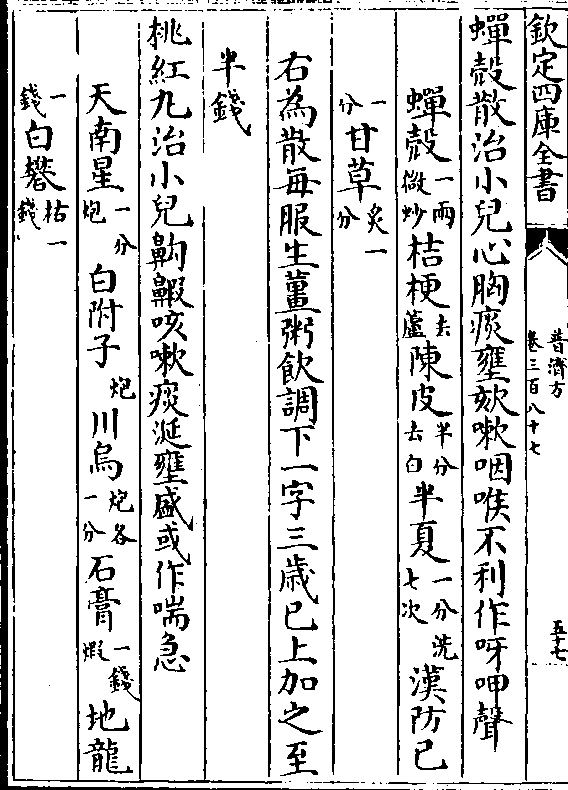 欽定四庫全書
普濟方
卷三百八十七
五十七
蟬殻散治小兒心胸痰壅欬嗽咽喉不利作呀呷聲
蟬殻一兩微炒桔梗去蘆陳皮半分去白半夏一分洗七次漢防已
一分甘草炙一分
右為散毎服生薑粥飲調下一字三歳已上加之至
半錢
桃紅丸治小兒齁䶎咳嗽痰涎壅盛或作喘急
天南星一分炮白附子炮川烏炮各一分石膏一錢煆地龍
一錢白礬枯一錢